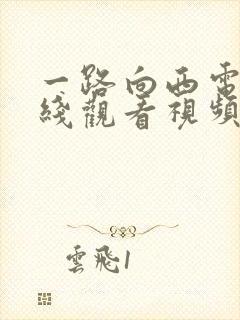 一路向西電
綫觀看視頻
雲飛1